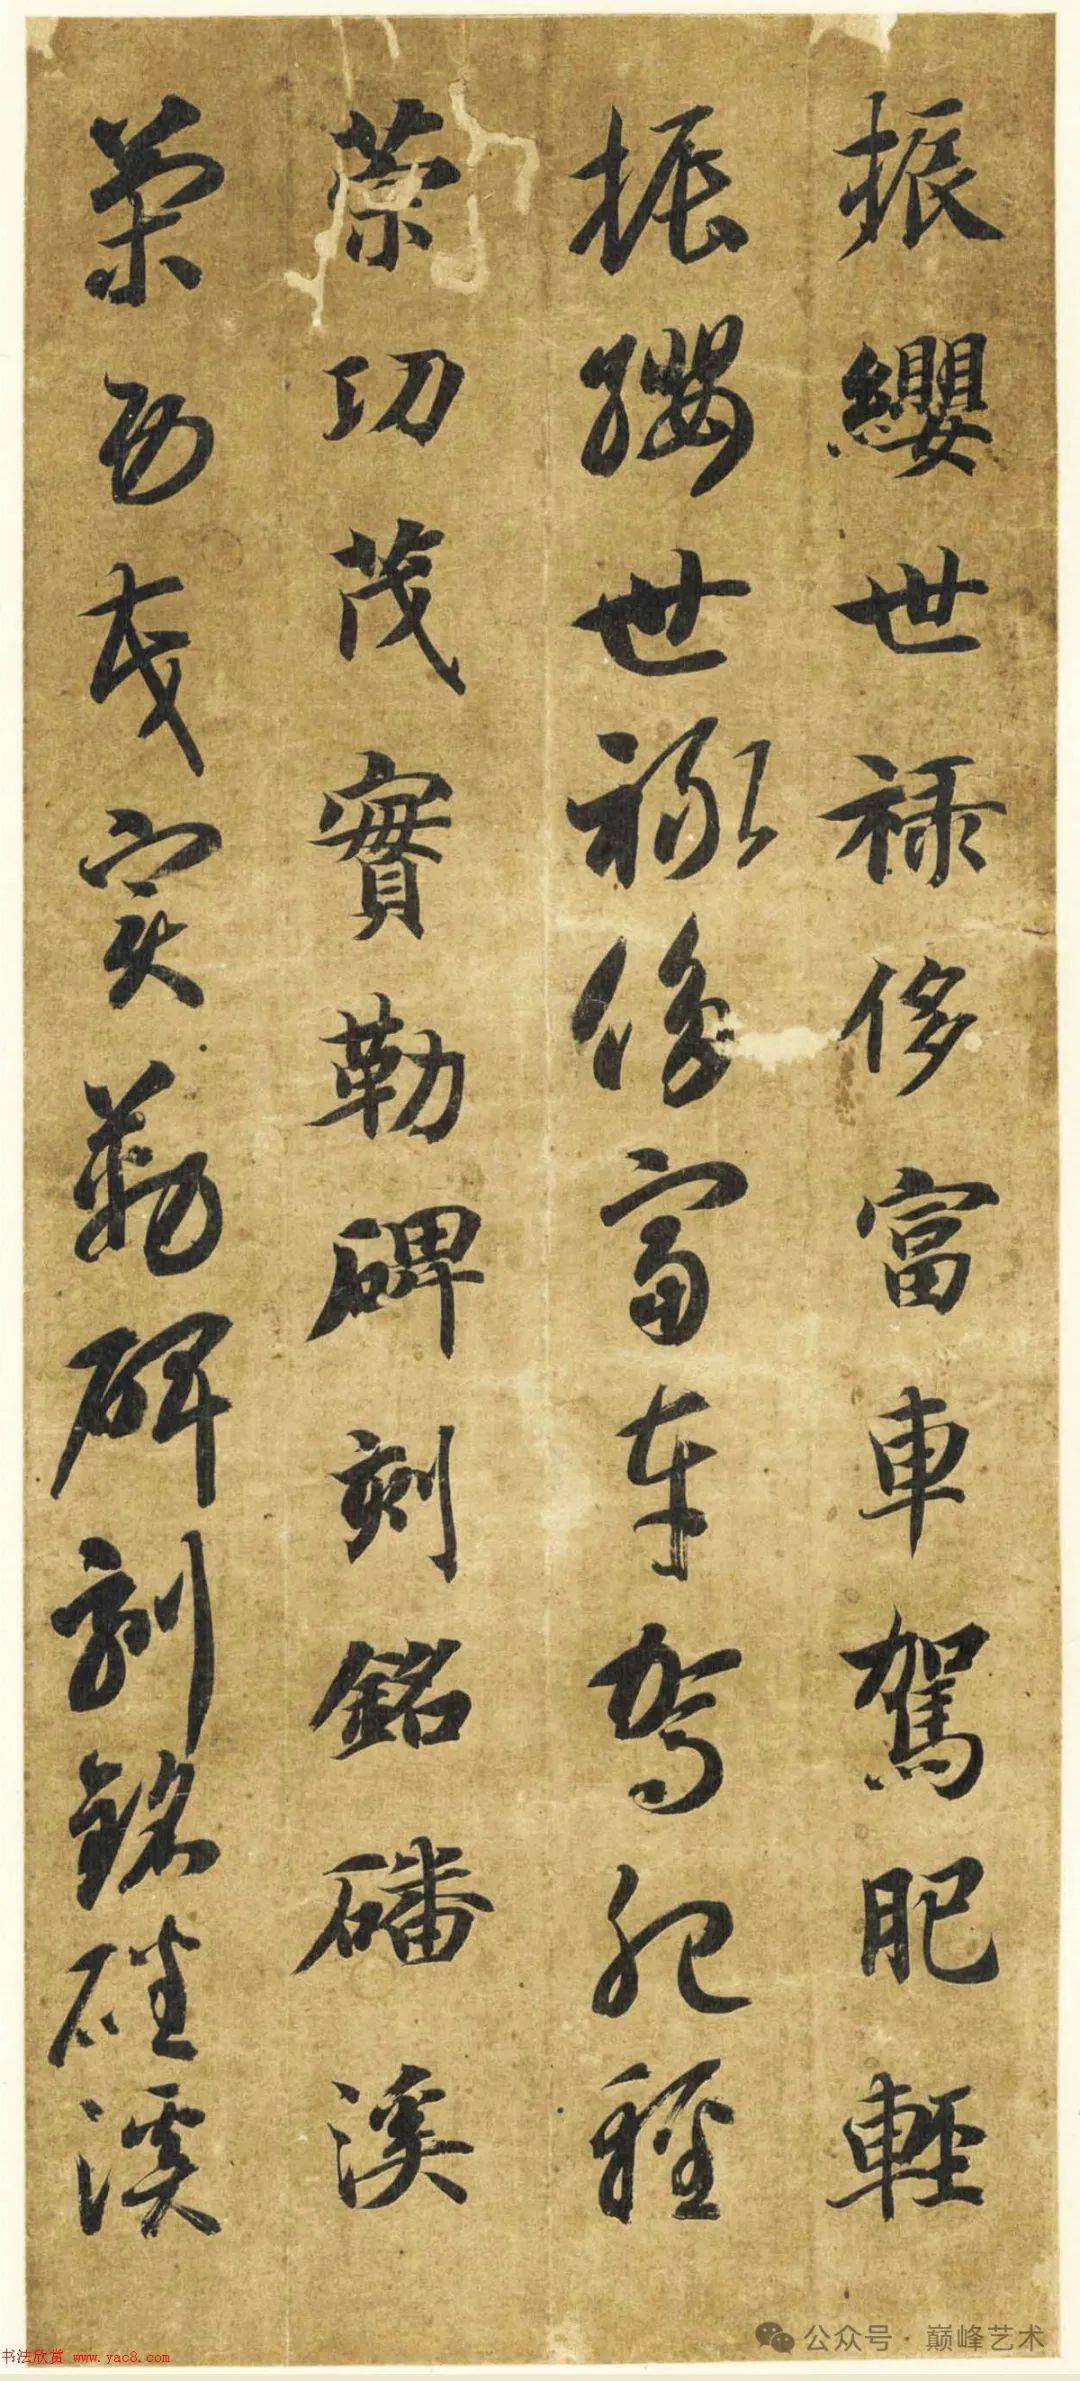 振纓世禄侈富車駕肥輕
振纓世禄侈富車駕肥輕
策功茂實勒碑刻銘磻溪
策功茂實勒碑刻銘磻溪
书法欣赏 www.yac8.com
公众号·巅峰艺术